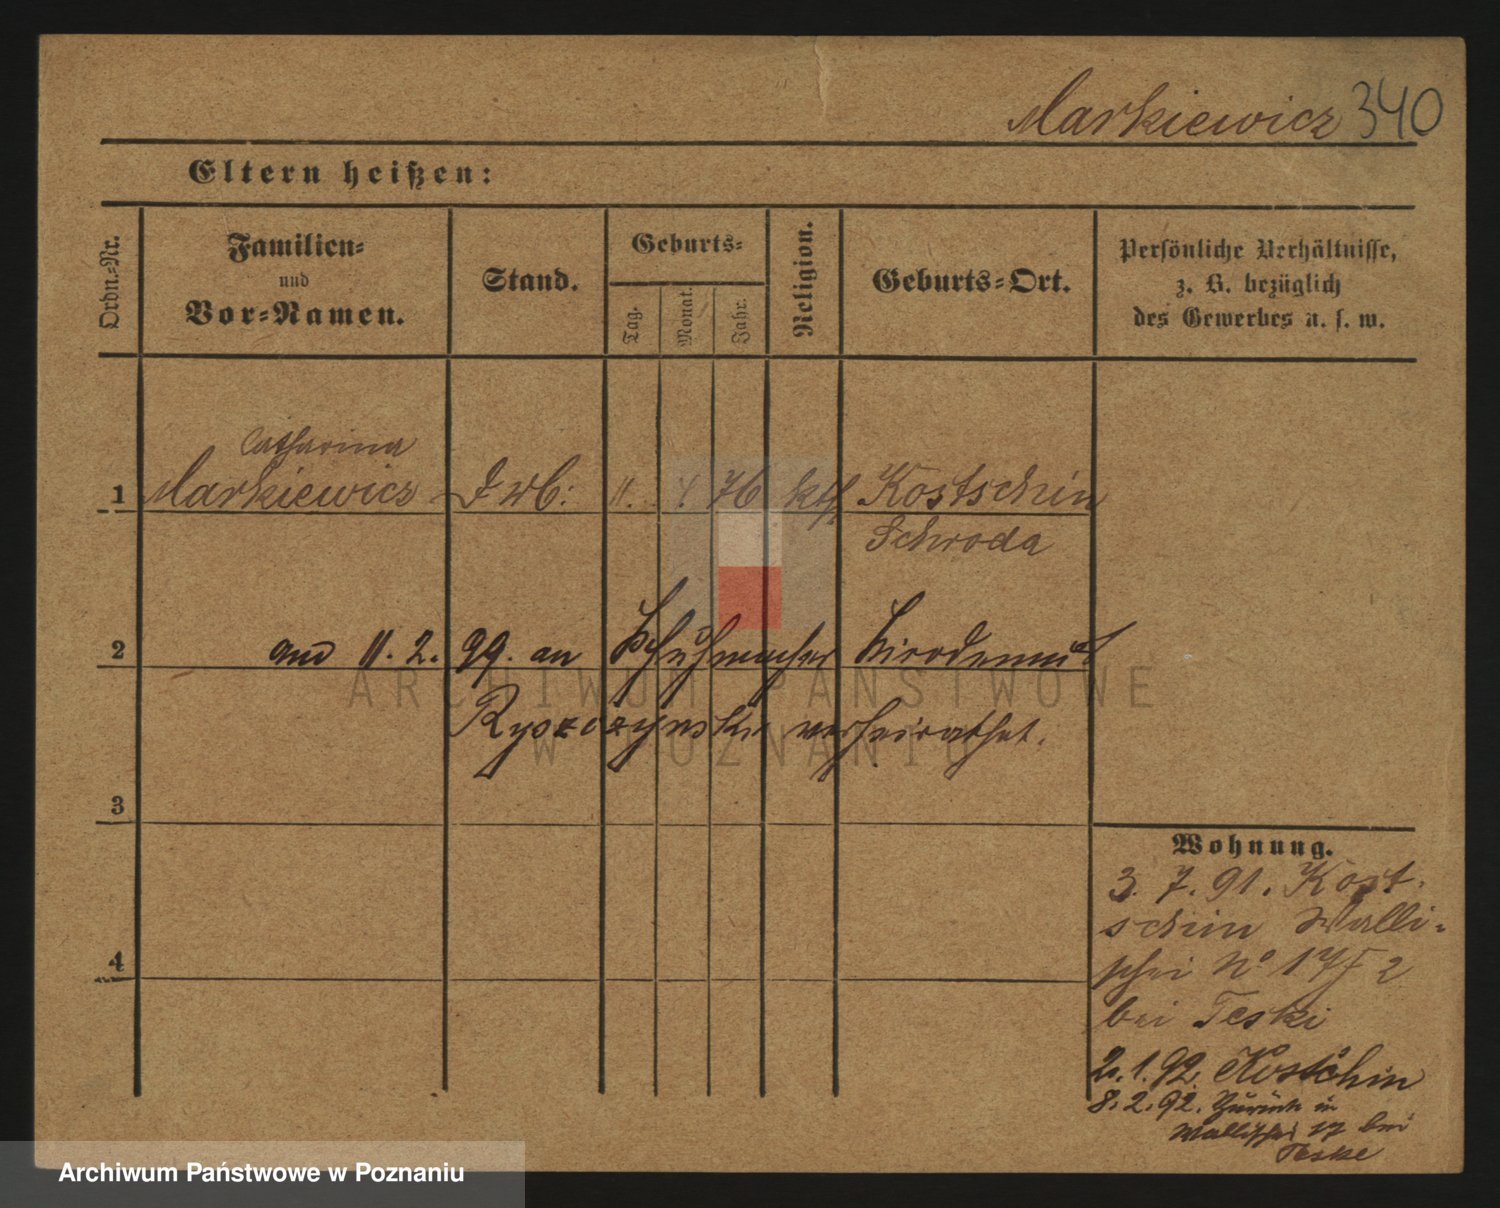 Markiewicz 340
Eltern heißen:
Ordn.-Nr.
Familien-
und
Vor-Namen.
Stand.
Geburts-
Tag.
Monat.
Jahr.
Religion.
Geburts-Ort.
Persönliche Verhältnisse,
z. B. bezüglich
des Gewerbes u. s. w.
Catharina
1 Markiewicz 11. 4. 76 kth Kostschin
Schroda
2 11. 2. 99. an Schuhmacher
ARCHIWUM PAŃSTWOWE
verheirathet.
W POZNANIU
3
Wohnung.
3. 7. 91. Kost-
schin Walli-
schei No
bei Teski
4
2. 1. 92. Kostschin
8. 2. 92. Zurück in
Wallischei 17 bei
Teske
Archiwum Państwowe w Poznaniu